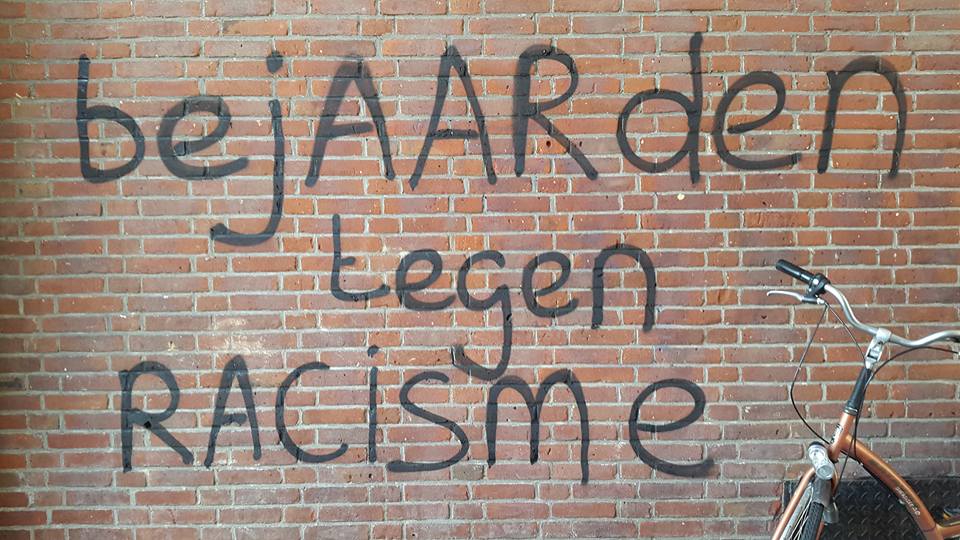 bejAARden
tegen
RACisme